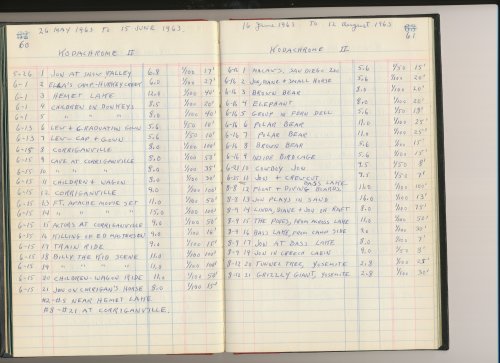 26 MAY 1963 TO 15 JUNE 1963.
60
KODACHROME II
5-26 1 JON AT SNOW VALLEY 6.8 1/100 17'
6-1 2 ELGA'S CAMP-HURKEY CREEK 6.0 1/100 27'
6-1 3 HEMET LAKE 12.0 1/100 40'
6-1 4 CHILDREN IN DONKEYS 8.5 1/100 20'
6-1 5 " " " 8.0 1/100 40'
6-13 6 LEW + GRADUATION GOWN 5.6 1/50 10'
6-13 7 LEW - CAP + GOWN 5.6 1/50 10'
6-15 8 CORRIGANVILLE 8.0 1/100 100'
6-15 9 CAVE AT CORRIGANVILLE 8.0 1/100 50'
6-15 10 " " " 8.0 1/100 35'
6-15 11 CHILDREN + WAGON 8.0 1/100 30'
6-15 12 CORRIGANVILLE 9.0 1/100 100'
6-15 13 FT. APACHE MOVIE SET 11.0 1/100 100'
6-15 14 " " " 15.0 1/100 100'
6-15 15 ACTORS AT CORRIGANVILLE 9.0 1/100 50'
6-15 16 KILLING OF ED MASTERSON 9.0 1/100 16'
6-15 17 TRAIN RIDE 9.0 1/100 15'
6-15 18 BILLY THE KID SCENE 11.0 1/100 100'
6-15 19 " " " 11.0 1/100 100'
6-15 20 CHILDREN-WAGON RIDE 11.0 1/100 50'
6-15 21 JON ON CORRIGAN'S HORSE 8.0 1/100 15'
#2-#5 NEAR HEMET LAKE
#8-#21 AT CORRIGANVILLE.
16 June 1963 TO 12 August 1963
61
KODACHROME II
6-16 1 MACAWS, SAN DIEGO ZOO 5.6 1/50 15'
6-16 2 JON, DIANE + SMALL HORSE 5.6 1/100 20'
6-16 3 BROWN BEAR 8.0 1/100 20'
6-16 4 ELEPHANT 8.0 1/100 20'
6-16 5 GROUP IN FERN DELL 5.6 1/50 18'
6-16 6 POLAR BEAR 11.0 1/100 25'
6-16 7 POLAR BEAR 11.0 1/100 25'
6-16 8 BROWN BEAR 5.6 1/100 15'
6-16 9 INSIDE BIRDCAGE 5.6 1/100 15'
6-21 10 COWBOY JON 9.5 1/50 8'
6-25 11 JON + CREWCUT 9.5 1/50 7'
BASS LAKE
8-8 12 FLOAT + DIVING BOARDS 16.0 1/100 100'
8-8 13 JON PLAYS IN SAND 16.0 1/100 13'
8-9 14 LINDA, DIANE + JON ON RAFT 8.0 1/100
8-9 15 THE PINES, FROM ACROSS LAKE 11.0 1/100
8-9 16 BASS LAKE, FROM CAMP SIDE 9.0 1/100
8-9 17 JON AT BASS LAKE 8.0 1/100 7'
8-9 19 JON IN
8-12 20 TUNNEL TREE, YOSEMITE 2.8 1/100 25'
8-12 21 GRIZZLY GIANT, YOSEMITE 2.8 1/100 30'